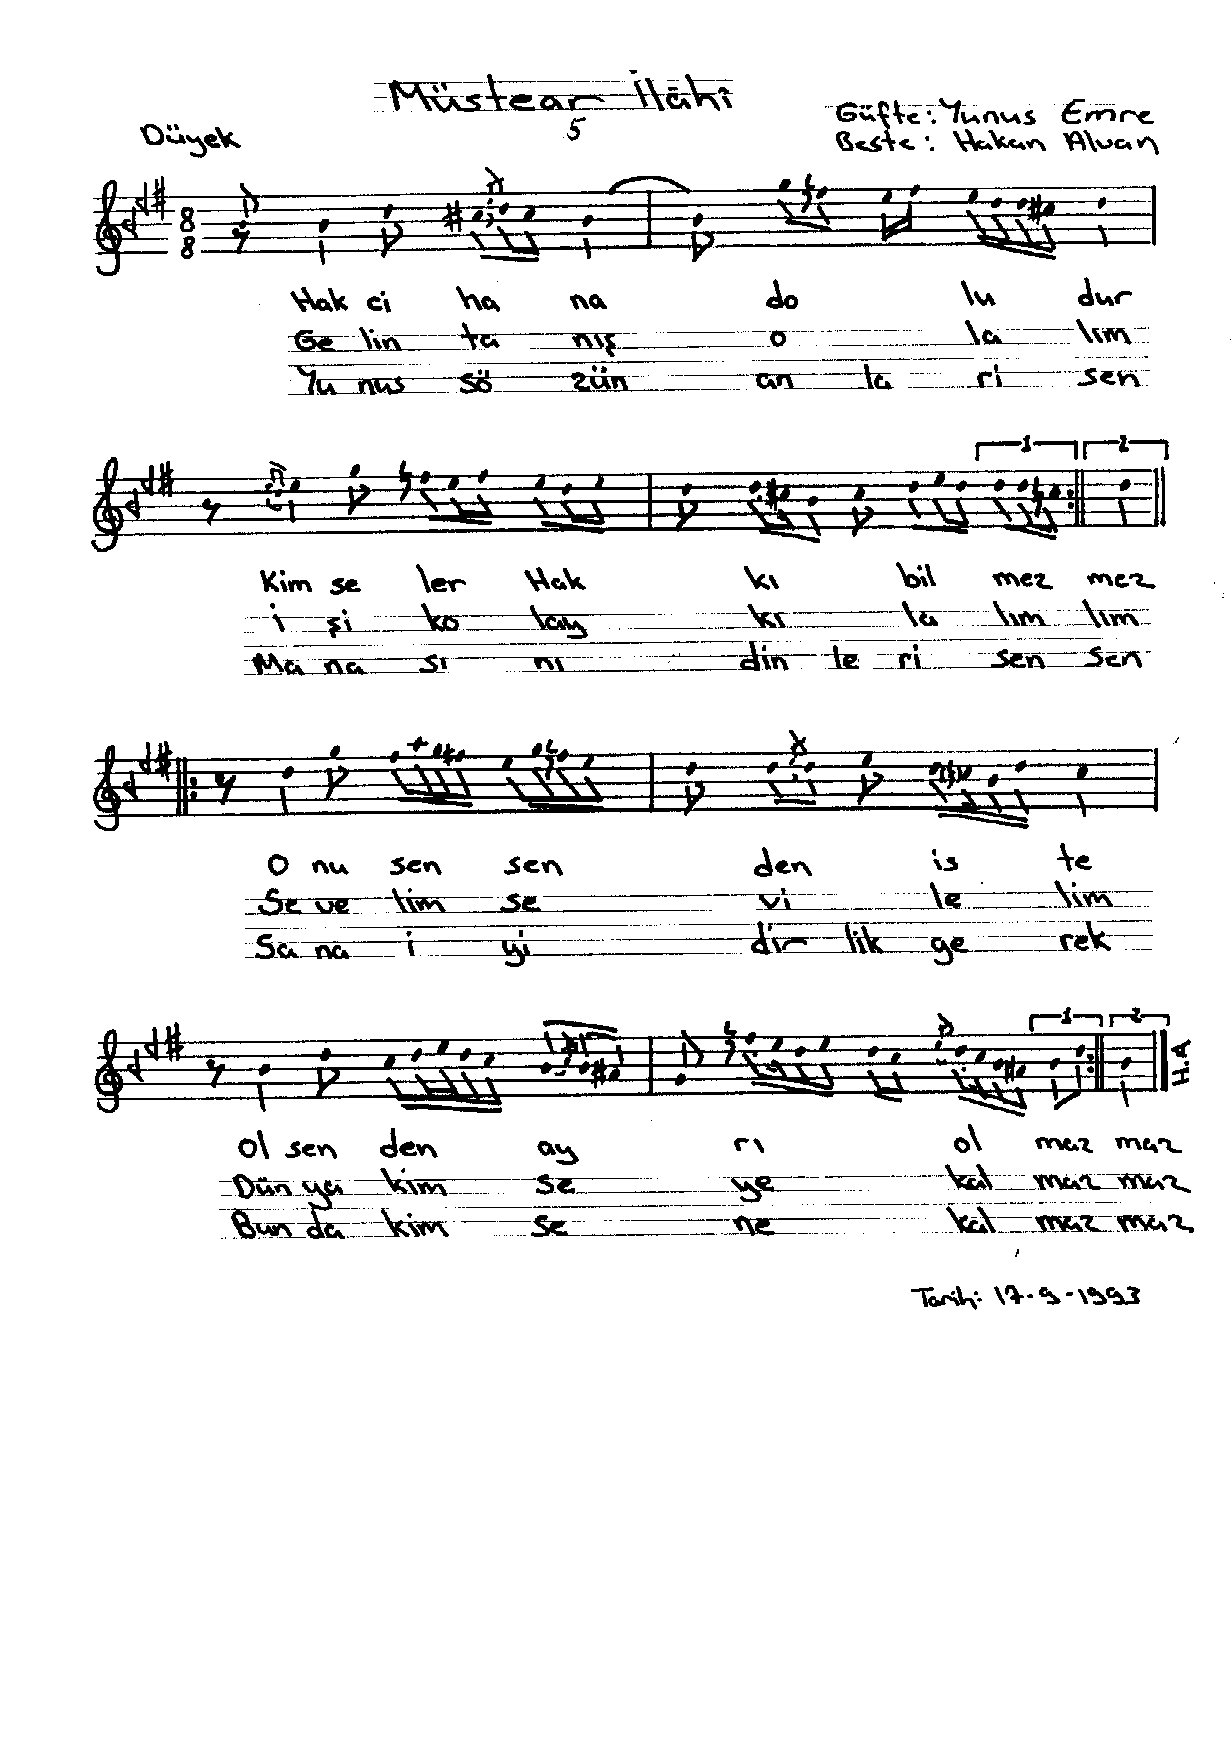 Müstear İlâhî
5
Düyek
Güfte: Yunus Emre
Beste: Hakan Alvan
8
8
Hak ci ha na do lu dur
Ge lin ta nış o la lım
Yu nus sö zün an la ri sen
1 2
Kim se ler Hak kı bil mez mez
i şi ko lay kı la lım lım
Ma na sı nı din le ri sen sen
O nu sen sen den is te
Se ve lim se vi le lim
Sa na i yi dir lik ge rek
1 2
H.A
Ol sen den ay rı ol maz maz
Dün ya kim se ye kal maz maz
Bun da kim se ne kal maz maz
Tarih: 17-9-1993